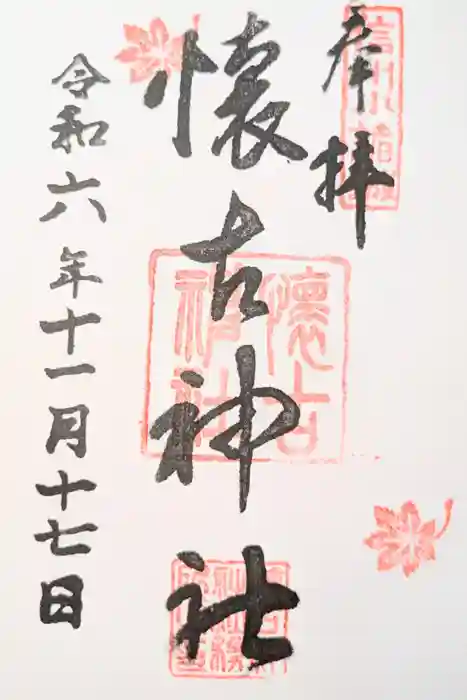 奉拝
懐古神社
懐古神社
令和六年十一月十七日